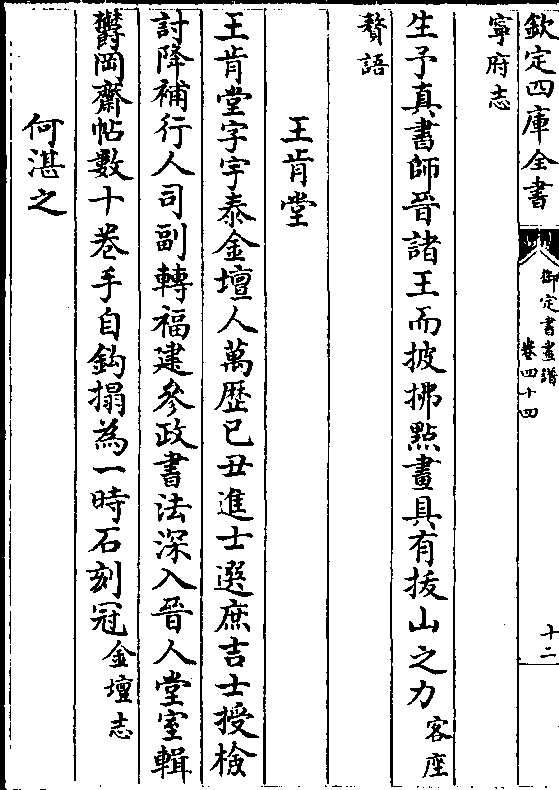 欽定四庫全書
御定書畫譜
卷四十四
十二
寧府志
生予真書師晉諸王而披拂點畫具有拔山之力客座
贅語
王肯堂
王肯堂字宇泰金壇人萬歷已丑進士選庶吉士授檢
討降補行人司副轉福建參政書法深入晉人堂室輯
鬱岡齋帖數十卷手自鈎搨為一時石刻冠金壇志
何湛之